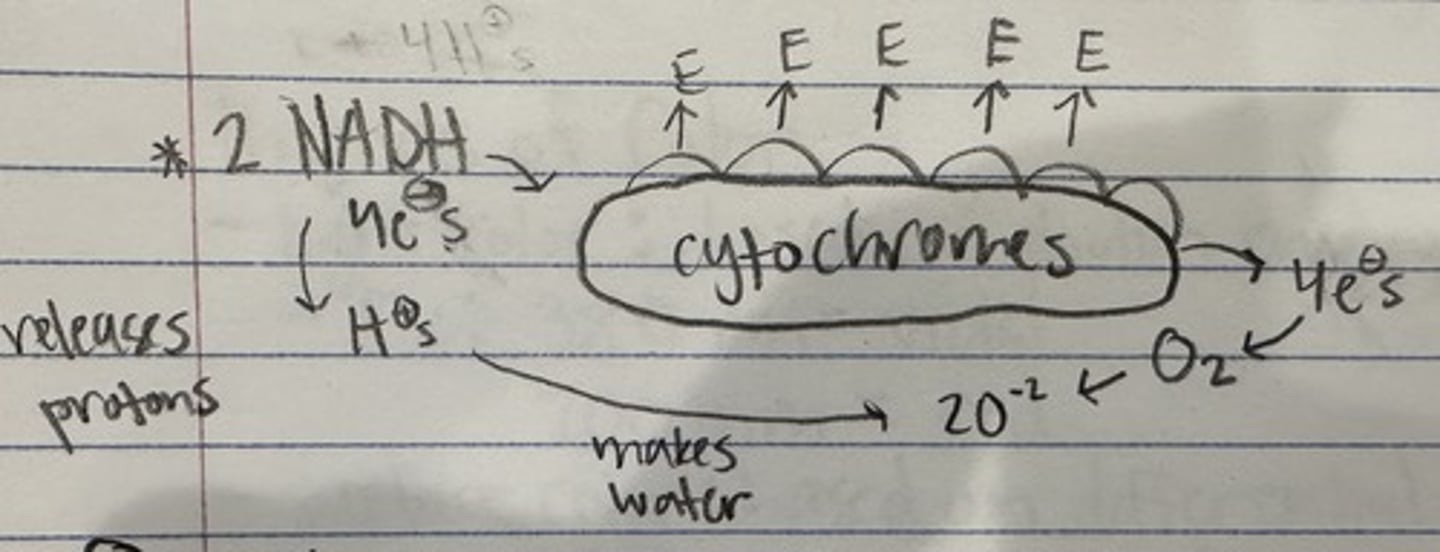 + 4H⊕s
E E E E E
* 2 NADH
4e⊖s
cytochromes
4e⊖s
releases
protons
H⊕s
O₂
2O⁻²
makes
water